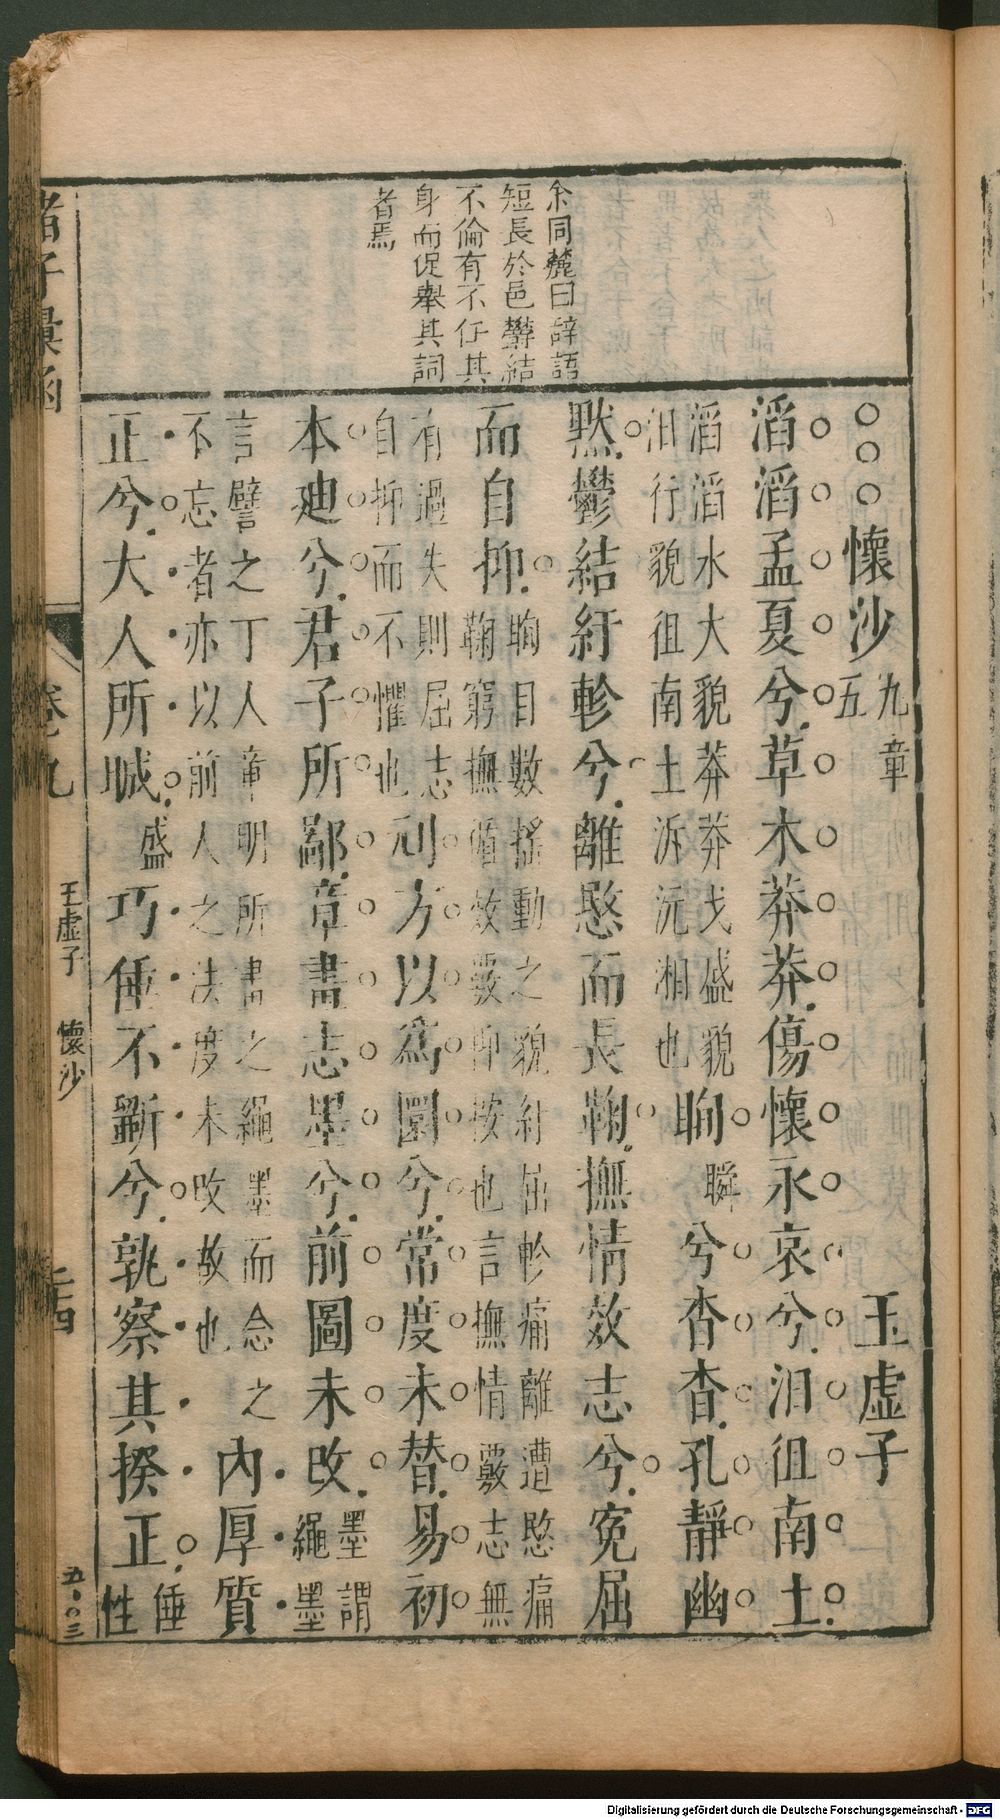 余同麓曰辭語
短長於邑欝結
不倫有不伃其
身而促舉其詞
者焉
懷沙 九章五 玉虛子
滔滔孟夏兮草木莽莽傷懷永哀兮汩徂南土
滔滔水大貌莽莽戊盛貌
汩行貌徂南土泝沅湘也
眴瞬兮杳杳孔靜幽
默鬱結紆軫兮離愍而長鞠撫情效志兮冤屈
而自抑
眴目數搖動之貌紆屈軫痛離遭愍痛
鞠窮撫循效覈抑按也言撫情覈志無
有過失則屈志
自抑而不懼也
刓方以爲圜兮常度未替易初
本廸兮君子所鄙章畫志墨兮前圖未改
墨謂
繩墨
言譬之丁人章明所畫之繩墨而念之
不忘者亦以前人之法度未改故也
內厚質
正兮大人所晠盛巧倕不斲兮孰察其揆正
倕
性
諸子彙函 卷九 王虛子 懷沙 二十四 五〇三
Digitalisierung gefördert durch die Deutsche Forschungsgemeinschaft - DFG